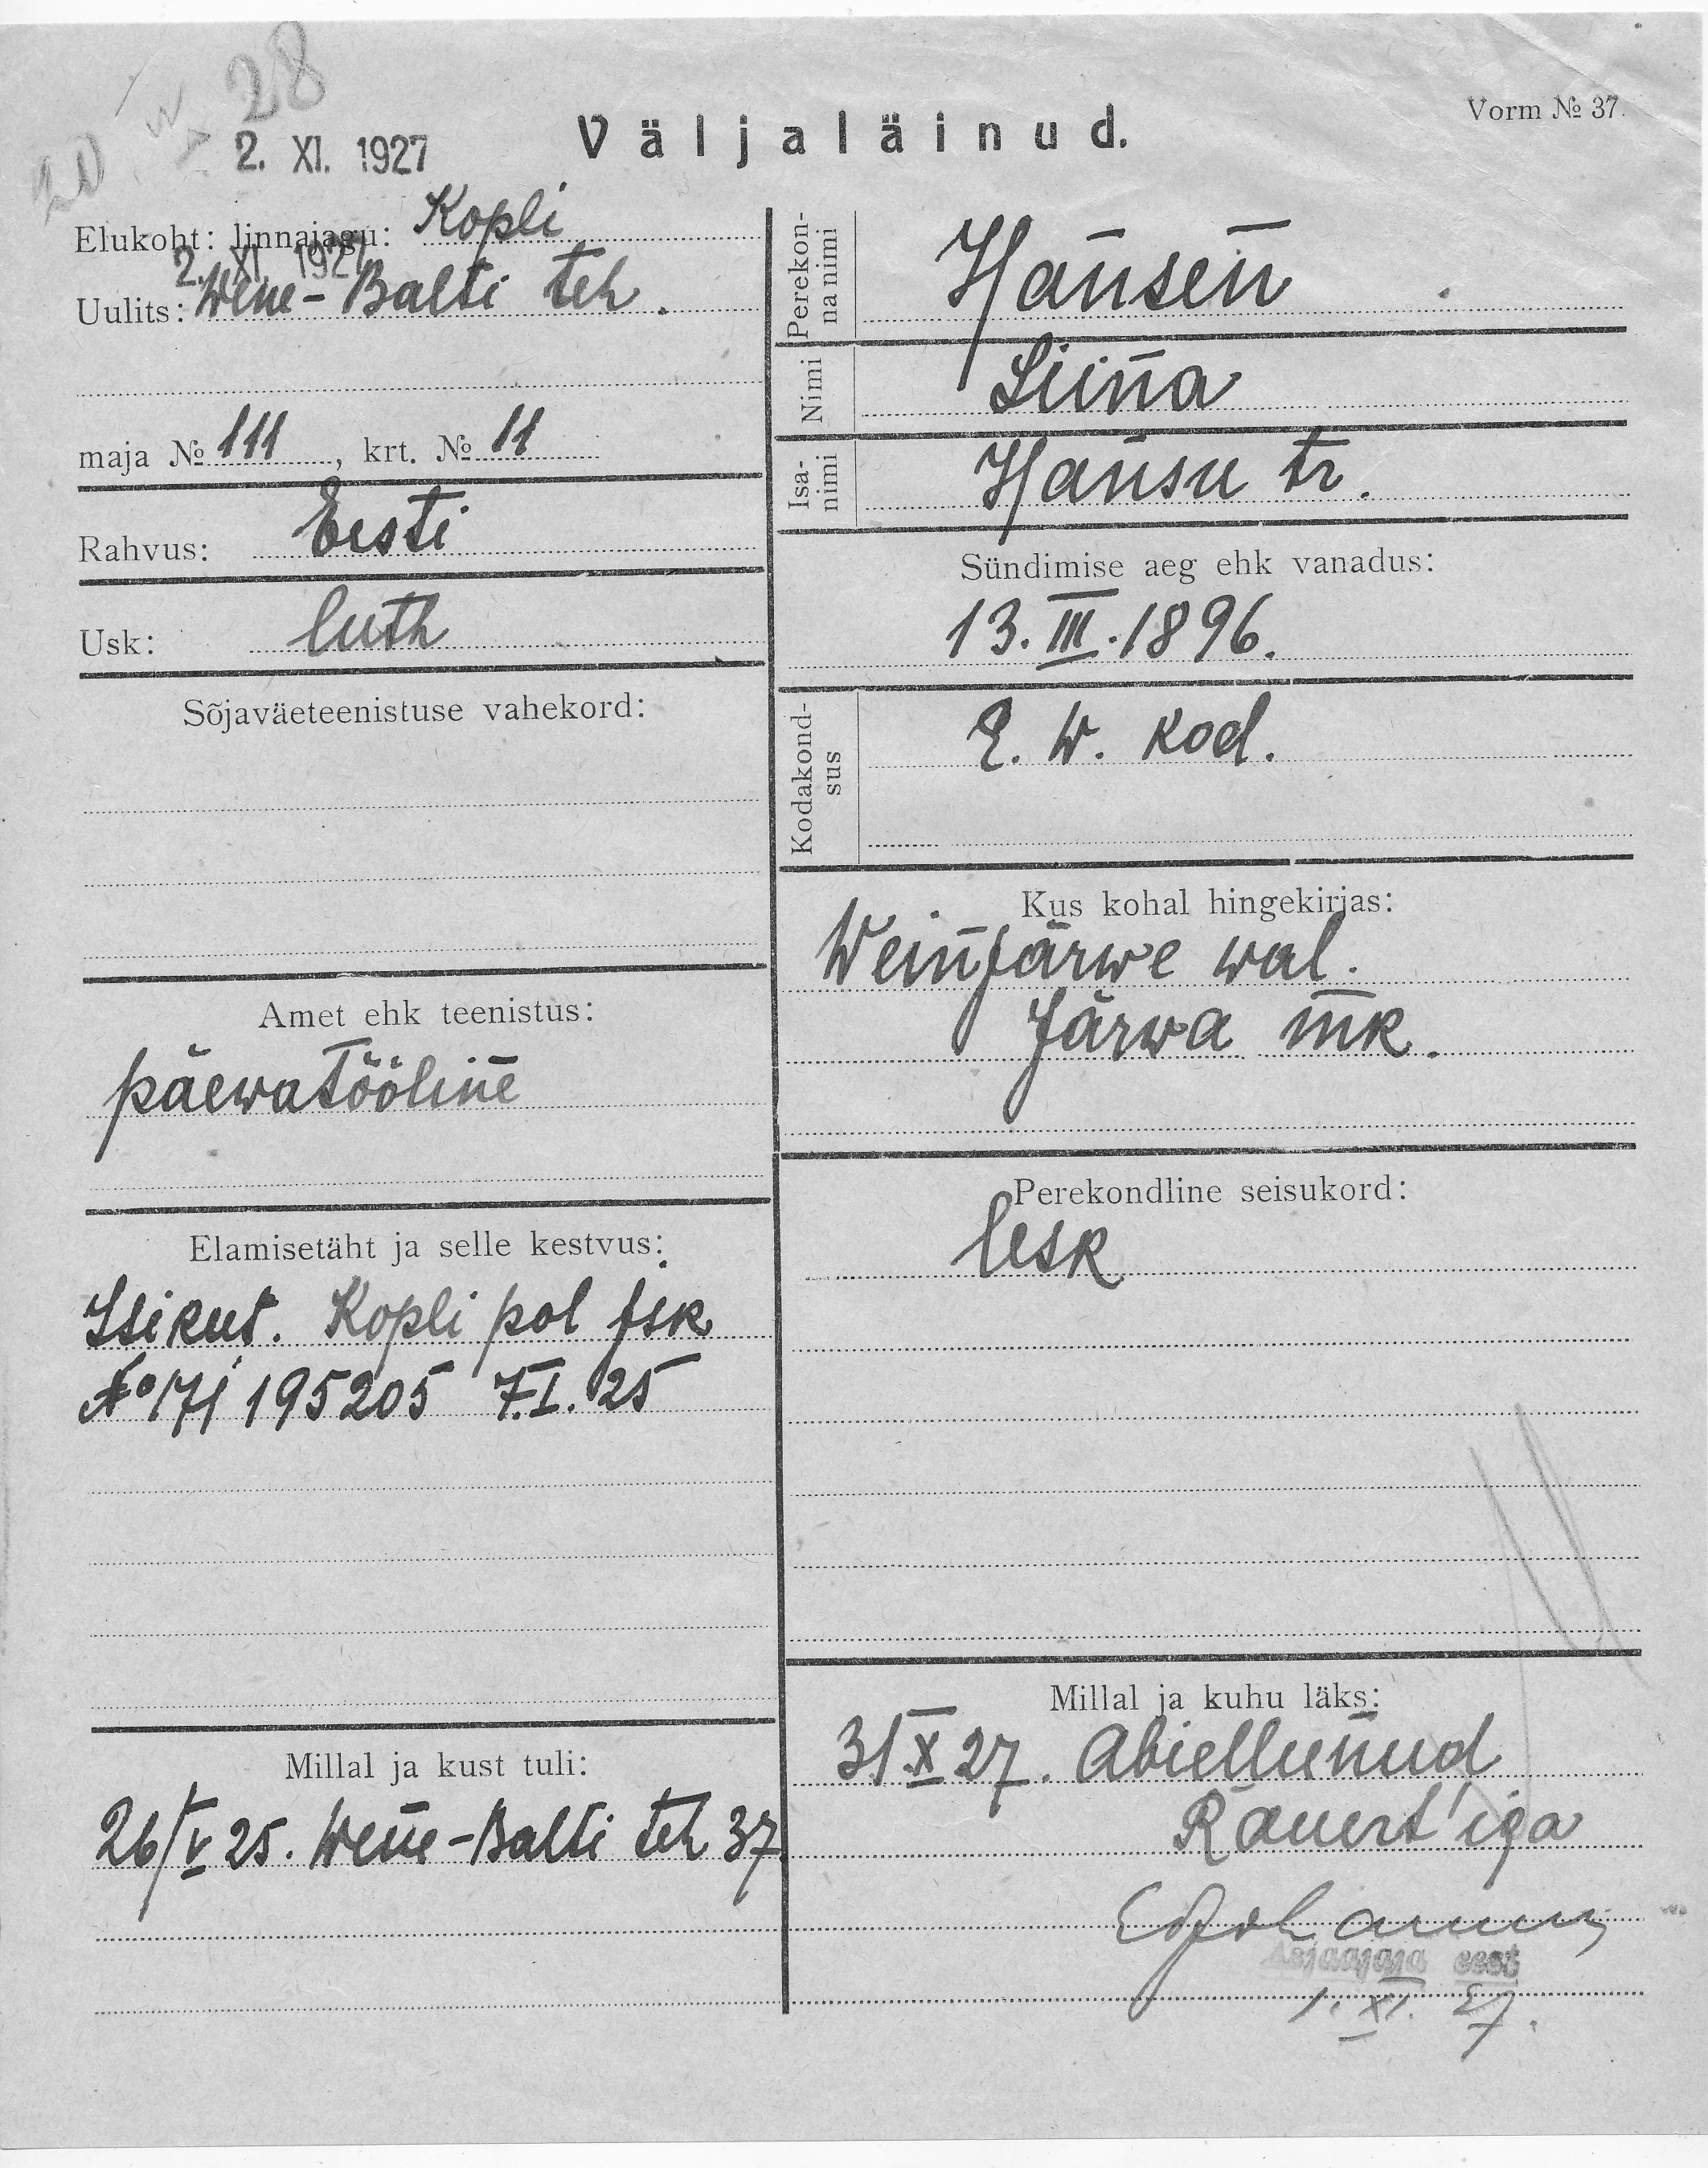 28
20
2. XI. 1927
Väljaläinud.
Vorm № 37.
Elukoht: linnajagu: Kopli
2. XI. 1927
Uulits: Wene-Balti teh.
maja № 111, krt. № 11
Rahvus: Eesti
Usk: luth
Sõjaväeteenistuse vahekord:
Amet ehk teenistus:
päewatööline
Elamisetäht ja selle kestvus:
Isikut. Kopli pol jsk
№ 171 195205 7.I.25
Millal ja kust tuli:
26/V 25. Wene-Balti teh 37
Perekon-
na nimi
Hansen
Nimi
Liina
Isa-
nimi
Hansu tr.
Sündimise aeg ehk vanadus:
13.III.1896.
Kodakond-
sus
E. W. kod.
Kus kohal hingekirjas:
Weinjärwe wal.
Järwa mk.
Perekondline seisukord:
lesk
Millal ja kuhu läks:
31 X 27. Abiellunud
Rauert'iga
Asjaajaja eest
1. XI. 27.